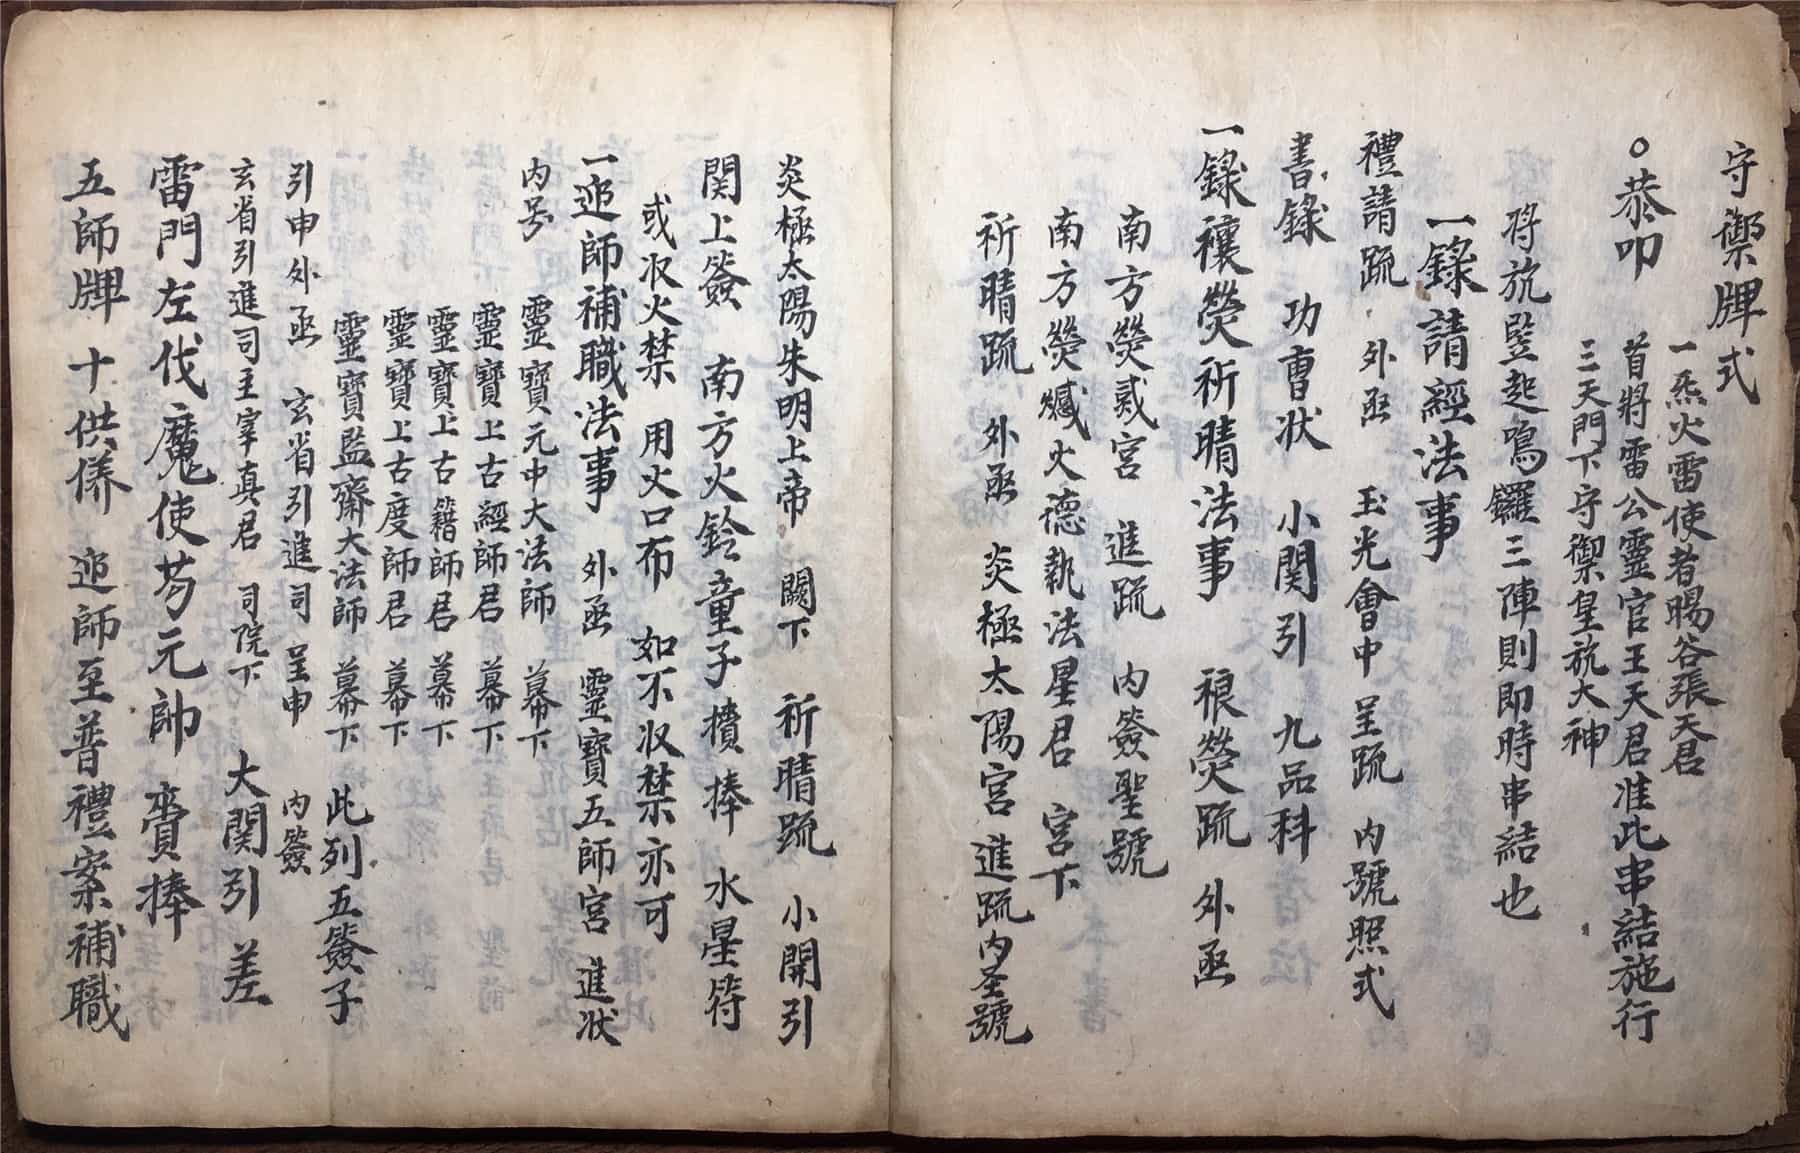 守禦牌式
一炁火雷使者暘谷張天君
○恭叩 首將雷公靈官王天君准此串結施行
三天門下守禦皇旂大神
將旂竪起鳴鑼三陣則即時串結也
一錄請經法事
禮請䟽 外函 玉光會中呈䟽 內號照式
書錄 功曹状 小関引 九品科
一錄禳熒祈晴法事 禳熒䟽 外函
南方熒惑宮 進䟽 內簽聖號
南方熒惑火德執法星君 宮下
祈晴䟽 外函 炎極太陽宮進䟽內圣號
炎極太陽朱明上帝 闕下 祈晴䟽 小開引
関上簽 南方火鈴童子擯捧 水星符
或収火禁 用火口布 如不収禁亦可
一迎師補職法事 外函 靈寶五師宮 進状
内号 靈寶元中大法師 幕下
靈寶上古經師君 幕下
靈寶上古籍師君 幕下
靈寶上古度師君 幕下
靈寶監齋大法師 幕下 此列五簽子
引申外函 玄省引進司 呈申 内簽
玄省引進司主宰真君 司院下 大関引 差
雷門左伐魔使苟元帥 賫捧
五師牌 十供俻 迎師至普禮案補職